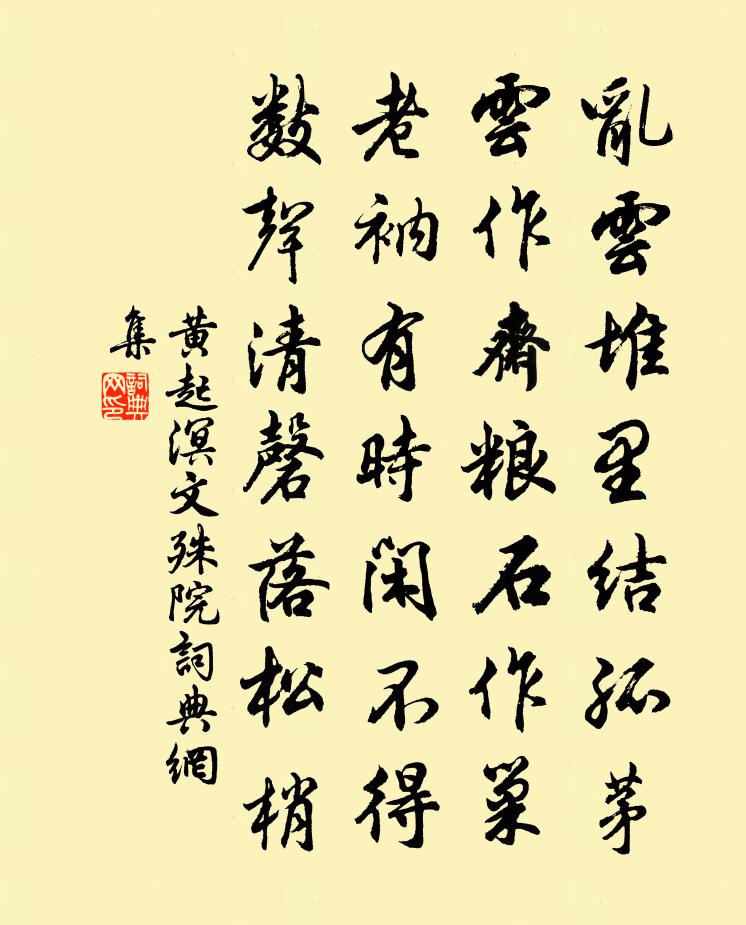 亂雲堆里結孤茅
雲作齋粮石作巢
老衲有時閑不得
数聲清磬落松梢
黄起溟文殊院詞典網
集
詞典網印